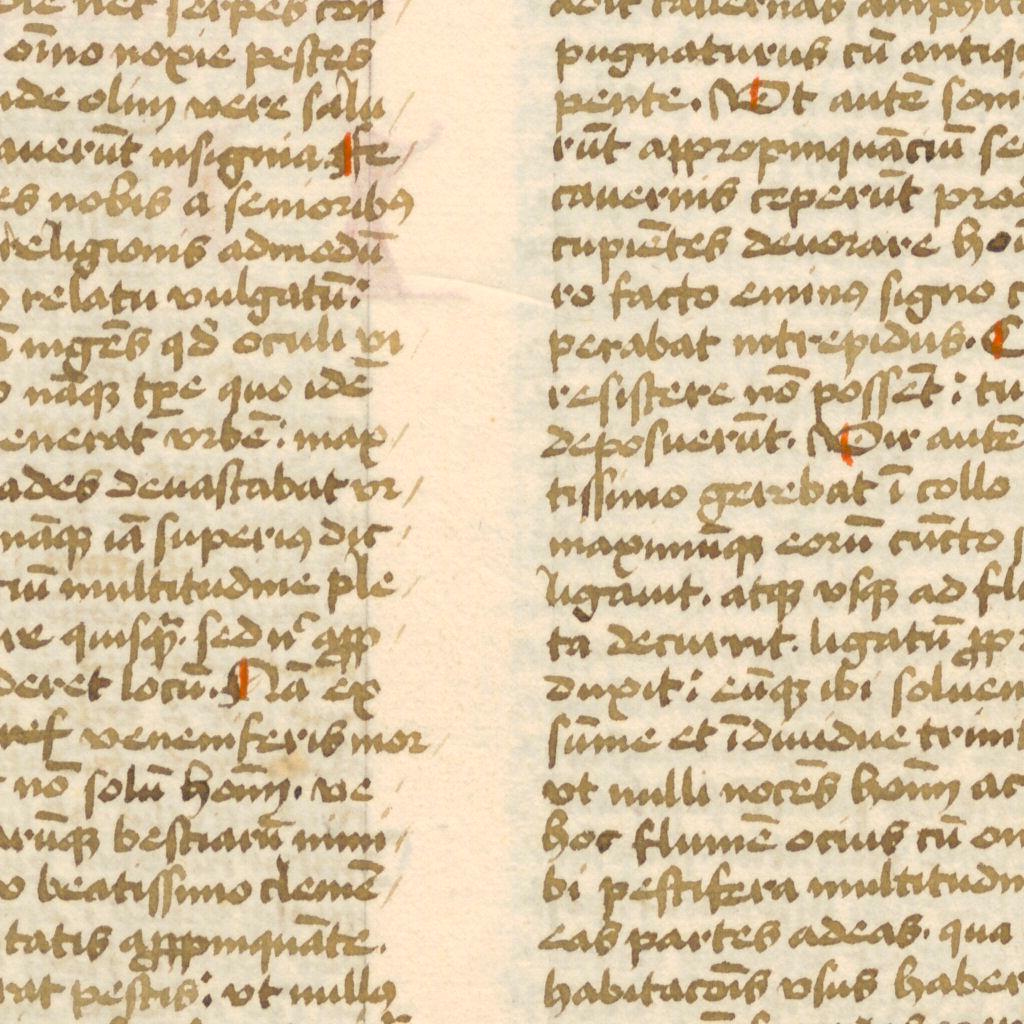 nec serpes con
oīno noxie pestes
inde olim vere salu
auerūt insignia. Fe
es nobis a senioribꝰ
religionis admodū
relatu vulgatū:
ingēs qd̄ oculi vi
nāqꝫ tp̄e quo idē
enerat vrbē: max
ades deuastabat vr
nāqꝫ iā superiꝰ dic
multitudine ple
quisqꝫ. sed n̄ app
deret locū. Nā ex
veneniferis mor
nō solū hoīm. ve
bestiarū nimi
beatissimo clemē
tatis appinquāte.
pestis: vt nullꝰ
cauernas
pugnaturus cū antiqu
pente. Vt autē som
rūt appropinquāciū se
cauernis ceperūt
cupiētes deuorare
ro facto eminꝰ signo c
perabat intrepidus.
resistere nō possēt: tu
deposuerūt. Vir autē
tissimo gerebat ī collo
maximūqꝫ eorū cūcto
ligauit. atqꝫ vsqꝫ ad flu
ta decurrit. ligatū pp
duxit: eūqꝫ ibi soluen
sūme et īdiuidue trinit
vt nulli nocēs hoīm ac
hoc flumē ocius cū om
bi pestifera multitudin
eas partes adeas. qua
habitacōīs vsus haber